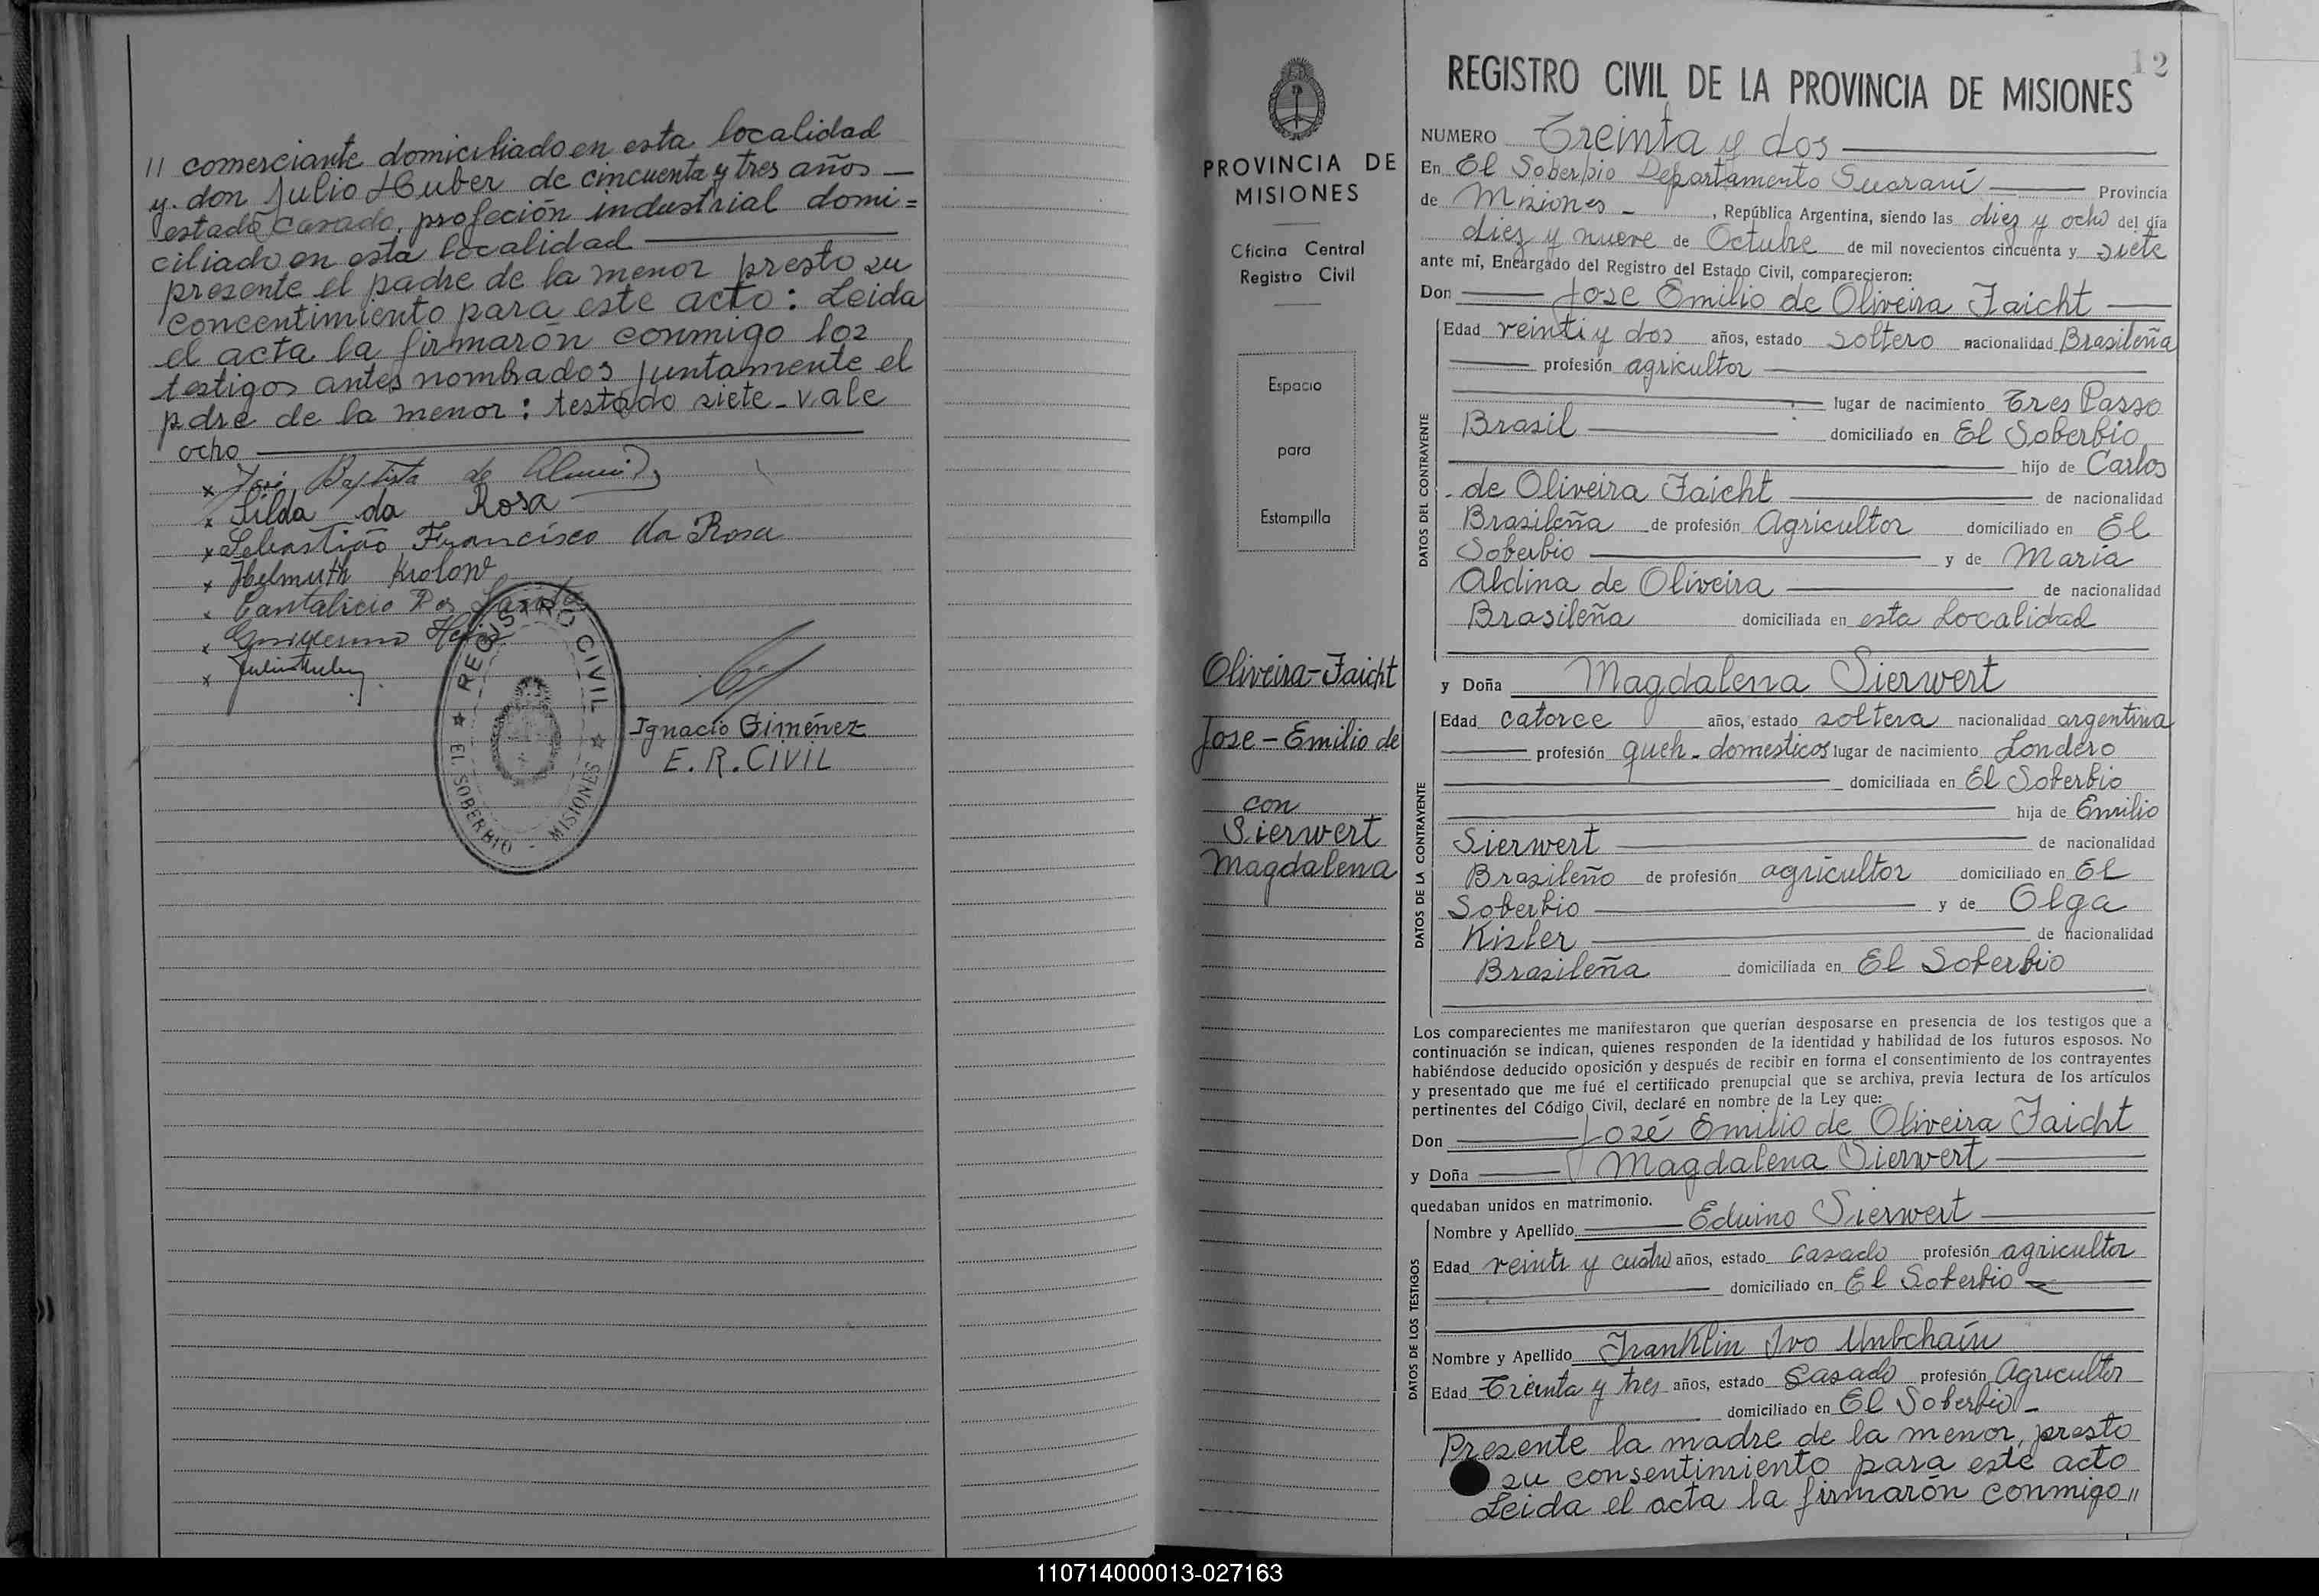 // comerciante domiciliado en esta localidad
y. don Julio Huber de cincuenta y tres años —
estado casado, profeción industrial domi=
ciliado en esta localidad
presente el padre de la menor presto su
concentimiento para este acto: Leida
el acta la firmarón conmigo los
testigos antes nombrados juntamente el
pdre de la menor: testado siete - vale
ocho
x José Baptista de
x Filda da Rosa
x Sebastião Francisco da Rosa
x Helmuth Krolow
x Cantalicio Dos Santos
x Guillermo
x Julio Huber
REGISTRO CIVIL
EL SOBERBIO - MISIONES
Ignacio Giménez
E. R. CIVIL
PROVINCIA DE
MISIONES
Oficina Central
Registro Civil
Espacio
para
Estampilla
Oliveira-Faicht
Jose - Emilio de
con
Sierwert
Magdalena
12
REGISTRO CIVIL DE LA PROVINCIA DE MISIONES
NUMERO Treinta y dos
En El Soberbio Departamento Guaraní Provincia
de Misiones - , República Argentina, siendo las diez y ocho del día
diez y nueve de Octubre de mil novecientos cincuenta y siete
ante mí, Encargado del Registro del Estado Civil, comparecieron:
Don Jose Emilio de Oliveira Faicht
DATOS DEL CONTRAYENTE
Edad veinti y dos años, estado soltero nacionalidad Brasileña
profesión agricultor
lugar de nacimiento Tres Passo
Brasil domiciliado en El Soberbio
hijo de Carlos
de Oliveira Faicht de nacionalidad
Brasileña de profesión Agricultor domiciliado en El
Soberbio y de María
Aldina de Oliveira de nacionalidad
Brasileña domiciliada en esta Localidad
y Doña Magdalena Sierwert
DATOS DE LA CONTRAYENTE
Edad catorce años, estado soltera nacionalidad argentina
profesión queh. domesticos lugar de nacimiento Londero
domiciliada en El Soberbio
hija de Emilio
Sierwert de nacionalidad
Brasileño de profesión agricultor domiciliado en El
Soberbio y de Olga
Kisler de nacionalidad
Brasileña domiciliada en El Soberbio
Los comparecientes me manifestaron que querían desposarse en presencia de los testigos que a
continuación se indican, quienes responden de la identidad y habilidad de los futuros esposos. No
habiéndose deducido oposición y después de recibir en forma el consentimiento de los contrayentes
y presentado que me fué el certificado prenupcial que se archiva, previa lectura de los artículos
pertinentes del Código Civil, declaré en nombre de la Ley que:
Don José Emilio de Oliveira Faicht
y Doña Magdalena Sierwert
quedaban unidos en matrimonio.
DATOS DE LOS TESTIGOS
Nombre y Apellido Eduino Sierwert
Edad veinti y cuatro años, estado casado profesión agricultor
domiciliado en El Soberbio
Nombre y Apellido Franklin Ivo Umbchain
Edad Treinta y tres años, estado Casado profesión Agricultor
domiciliado en El Soberbio -
Presente la madre de la menor, presto
su consentimiento para este acto
Leida el acta la firmarón conmigo //
110714000013-027163